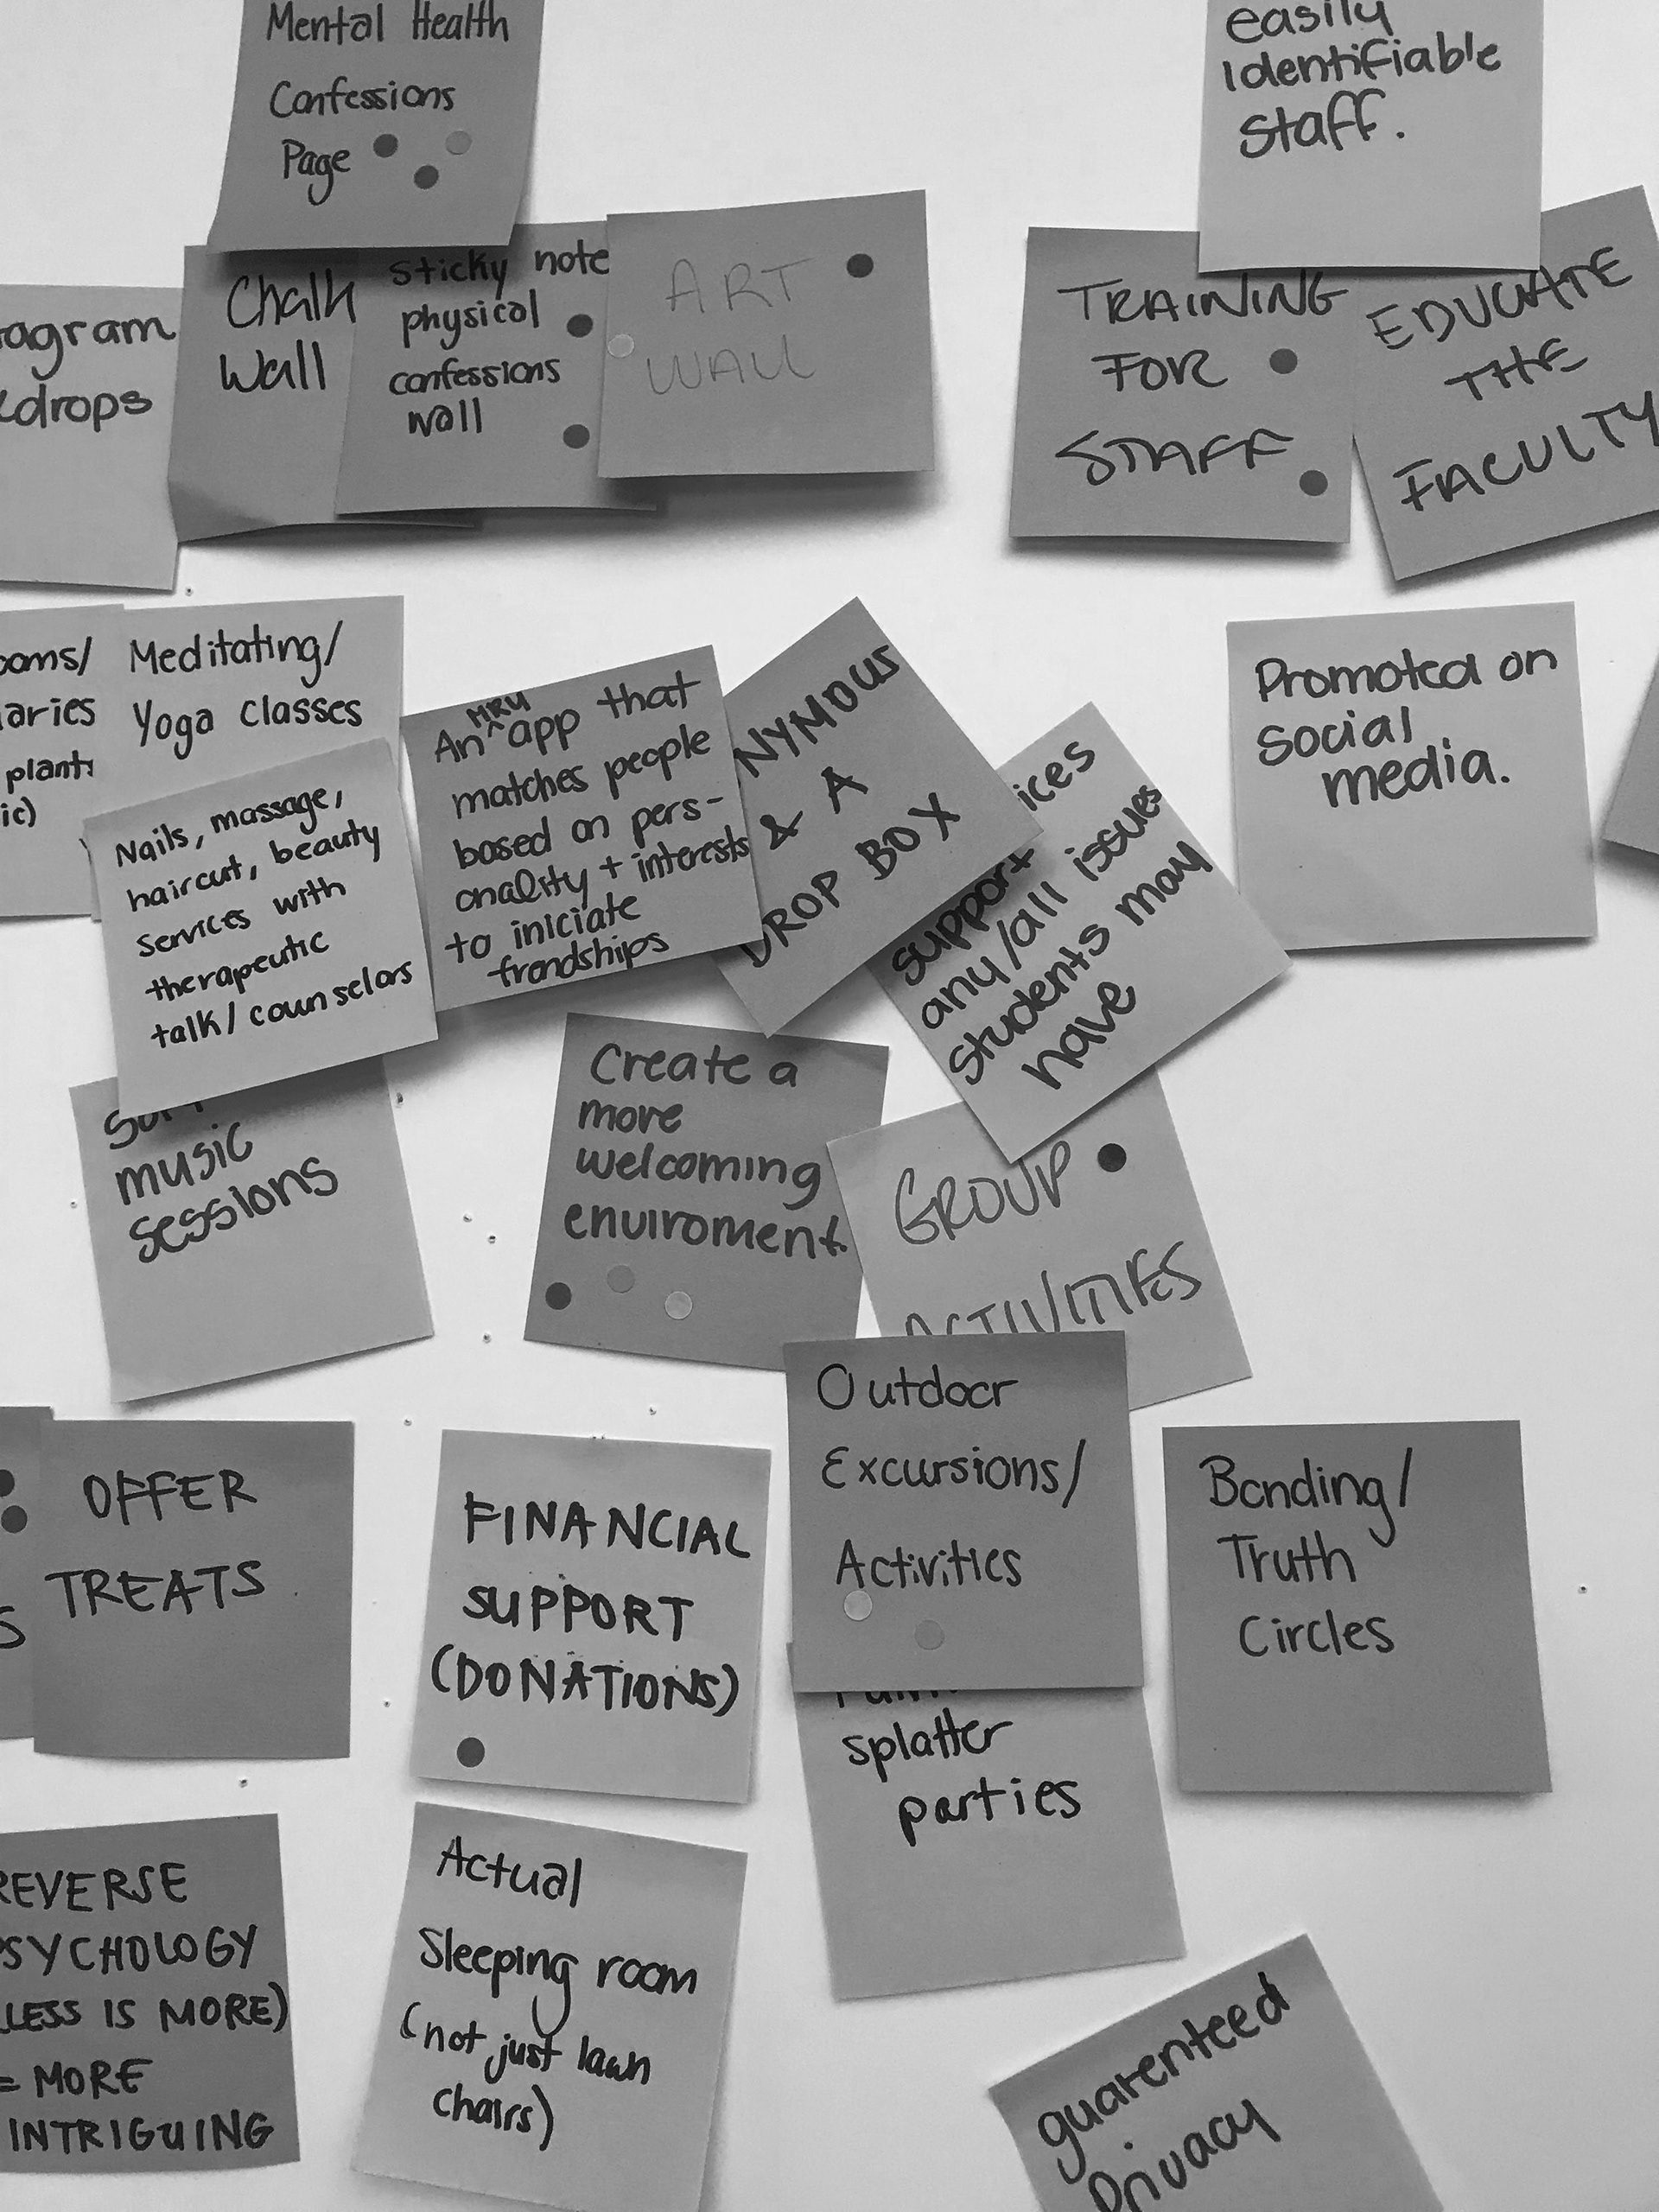 Mental Health
Confessions
Page
easily
identifiable
staff.
Chalk
Wall
Sticky note
physical
confessions
wall
ART
WALL
TRAINING
FOR
STAFF
EDUCATE
THE
FACULTY
agram
drops
Meditating/
Yoga classes
aries
plants
ic)
Nails, massage,
haircut, beauty
services with
therapeutic
talk/counselors
An MRU app that
matches people
based on pers-
onality + interests
to iniciate
frendships
NYMOUS
& A
DROP BOX
ices
support
any/all issues
students may
have
Promoted on
social
media.
music
sessions
Create a
more
welcoming
enviroment.
GROUP
ACTIVITIES
Outdoor
Excursions/
Activities
splatter
parties
Bonding/
Truth
Circles
OFFER
TREATS
S
FINANCIAL
SUPPORT
(DONATIONS)
REVERSE
PSYCHOLOGY
(LESS IS MORE)
= MORE
INTRIGUING
Actual
Sleeping room
(not just lawn
chairs)
guarenteed
privacy